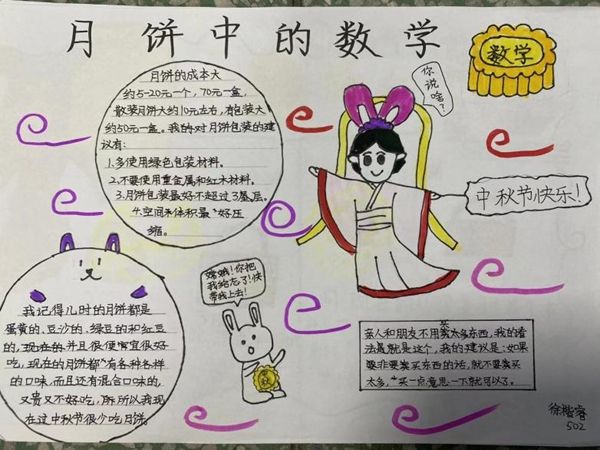 月饼中的数学
数学
你
说
啥?
中秋节快乐!
月饼的成本大
约5-20元一个,70元一盒,
散装月饼大约10元左右,有包装大
约50元一盒。我的对月饼包装的建
议有:
1.多使用绿色包装材料。
2.不要使用重金属和红木材料。
3.月饼包装最好不超过3层。
4.空间和体积最好压
缩。
嫦娥!你把
我给忘了!快
带我上去!
数
我记得儿时的月饼都是
蛋黄的、豆沙的、绿豆的和红豆
的,现在的并且很便宜很好
吃,现在的月饼都有各种各样
的口味,而且还有混合口味的,
又贵又不好吃,所以我现
在过中秋节很少吃月饼。
亲人和朋友不用买太多东西,我的看
法就是这个,我的建议是:如果
要非要买东西的话,就不要买
太多,买一点意思一下就可以了。
徐楷睿
502